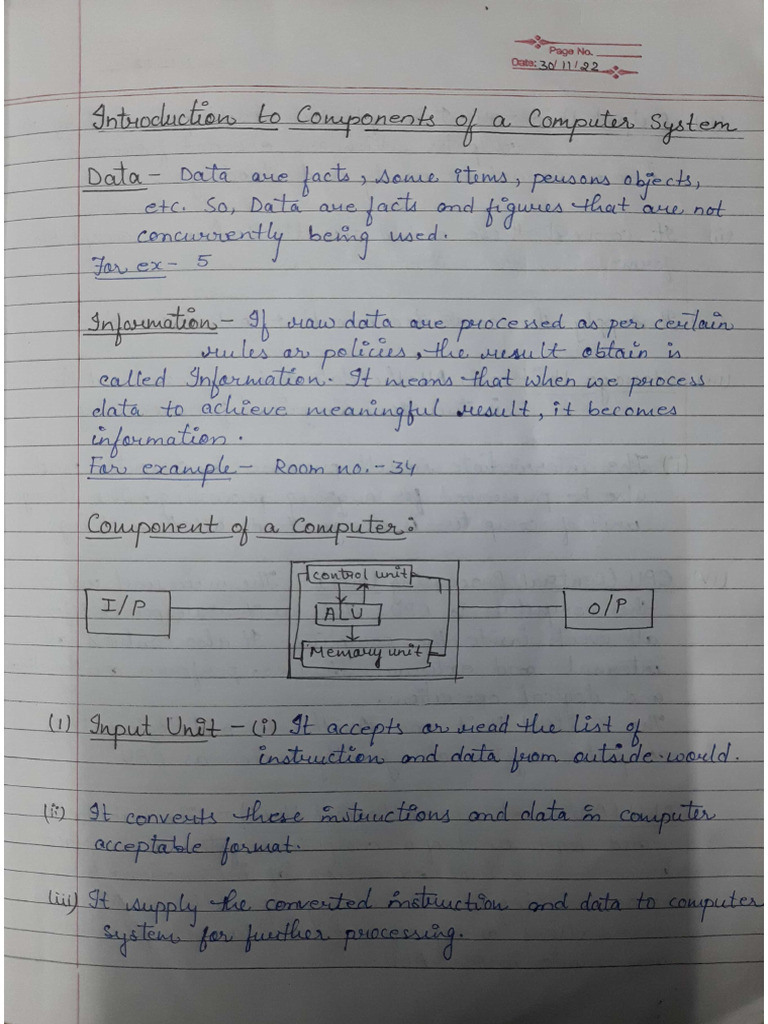 Page No.
Date: 30/11/22
Introduction to Components of a Computer System
Data - Data are facts, some items, persons objects,
etc. So, Data are facts and figures that are not
concurrently being used.
For ex - 5
Information - If raw data are processed as per certain
rules or policies, the result obtain is
called Information. It means that when we process
data to achieve meaningful result, it becomes
information.
For example - Room no. - 34
Component of a Computer:
control unit
I/P
ALU
O/P
Memory unit
(1) Input Unit - (i) It accepts or read the list of
instruction and data from outside world.
(ii) It converts these instructions and data in computer
acceptable format.
(iii) It supply the converted instruction and data to computer
system for further processing.